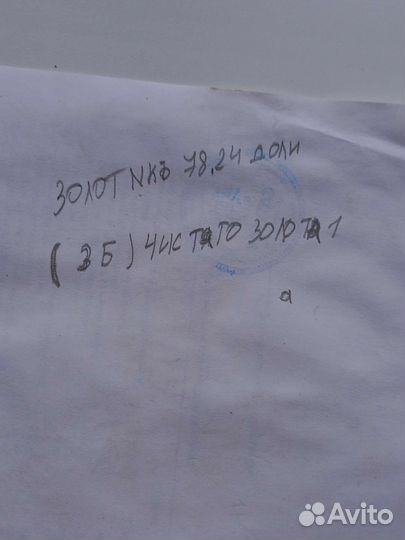 ЗОЛОТNКЪ 78,24 ДОЛИ
(3Б) ЧИСТАГО ЗОЛОТА 1
а
Avito